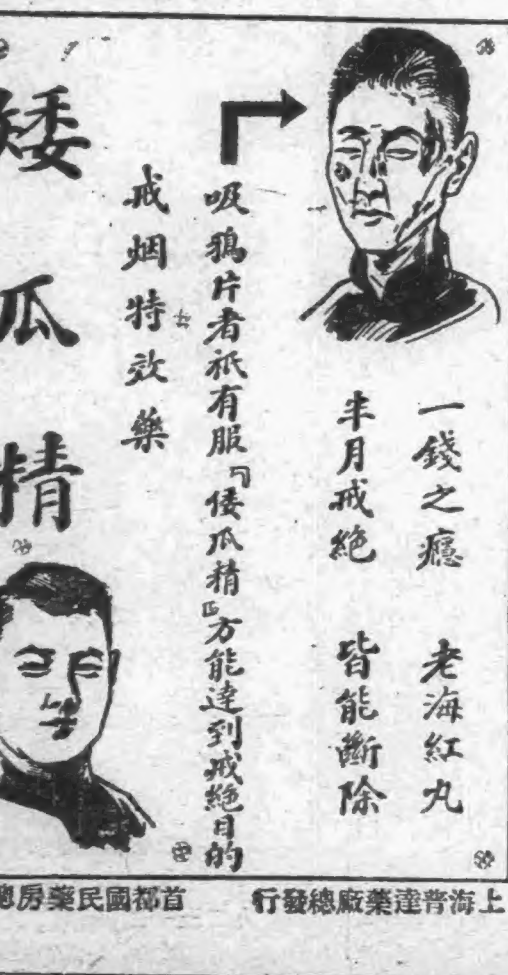 一錢之癮　老海紅丸
半月戒絕　皆能斷除
吸鴉片者祇有服『倭瓜精』方能達到戒絕目的
戒烟特效藥
矮瓜精
上海普達藥廠總發行
首都國民藥房總